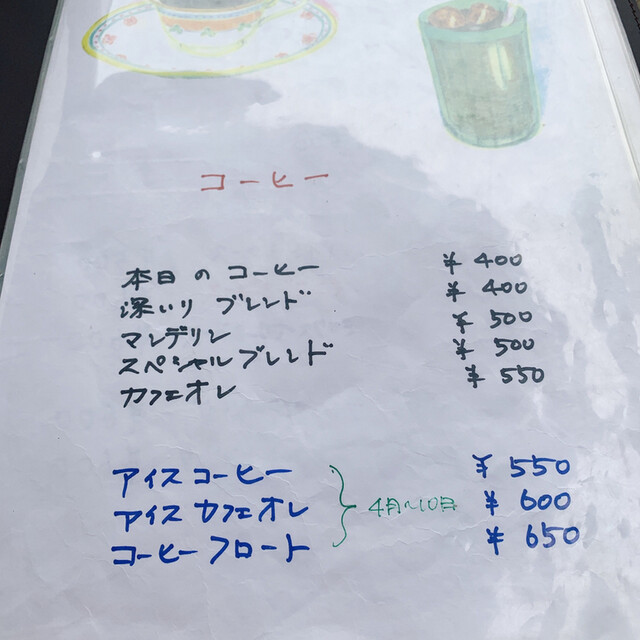 コーヒー
本日のコーヒー ¥400
深いりブレンド ¥400
マンデリン ¥500
スペシャルブレンド ¥500
カフェオレ ¥550
アイスコーヒー ¥550
アイスカフェオレ 4月〜10月 ¥600
コーヒーフロート ¥650